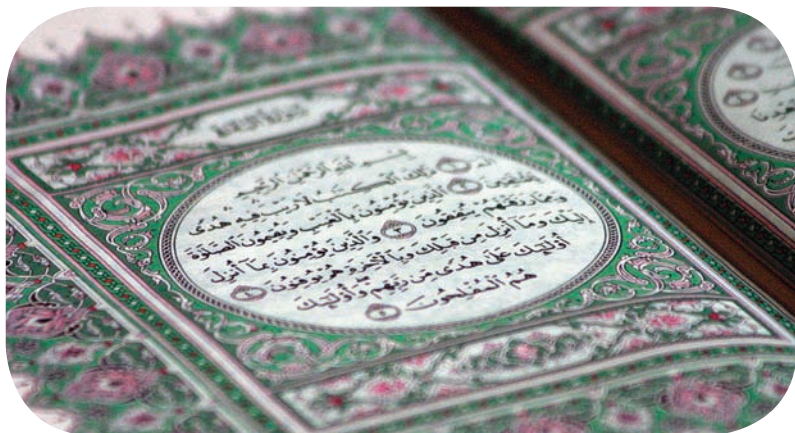 سُورَةُ البَقَرَةِ
بِسْمِ اللَّهِ الرَّحْمَٰنِ الرَّحِيمِ
الٓمٓ ١ ذَٰلِكَ ٱلْكِتَٰبُ لَا رَيْبَ فِيهِ هُدًى
لِّلْمُتَّقِينَ ٢ ٱلَّذِينَ يُؤْمِنُونَ بِٱلْغَيْبِ وَيُقِيمُونَ ٱلصَّلَوٰةَ
وَمِمَّا رَزَقْنَٰهُمْ يُنفِقُونَ ٣ وَٱلَّذِينَ يُؤْمِنُونَ بِمَآ أُنزِلَ
إِلَيْكَ وَمَآ أُنزِلَ مِن قَبْلِكَ وَبِٱلْءَاخِرَةِ هُمْ يُوقِنُونَ ٤
أُو۟لَٰٓئِكَ عَلَىٰ هُدًى مِّن رَّبِّهِمْ وَأُو۟لَٰٓئِكَ
هُمُ ٱلْمُفْلِحُونَ ٥